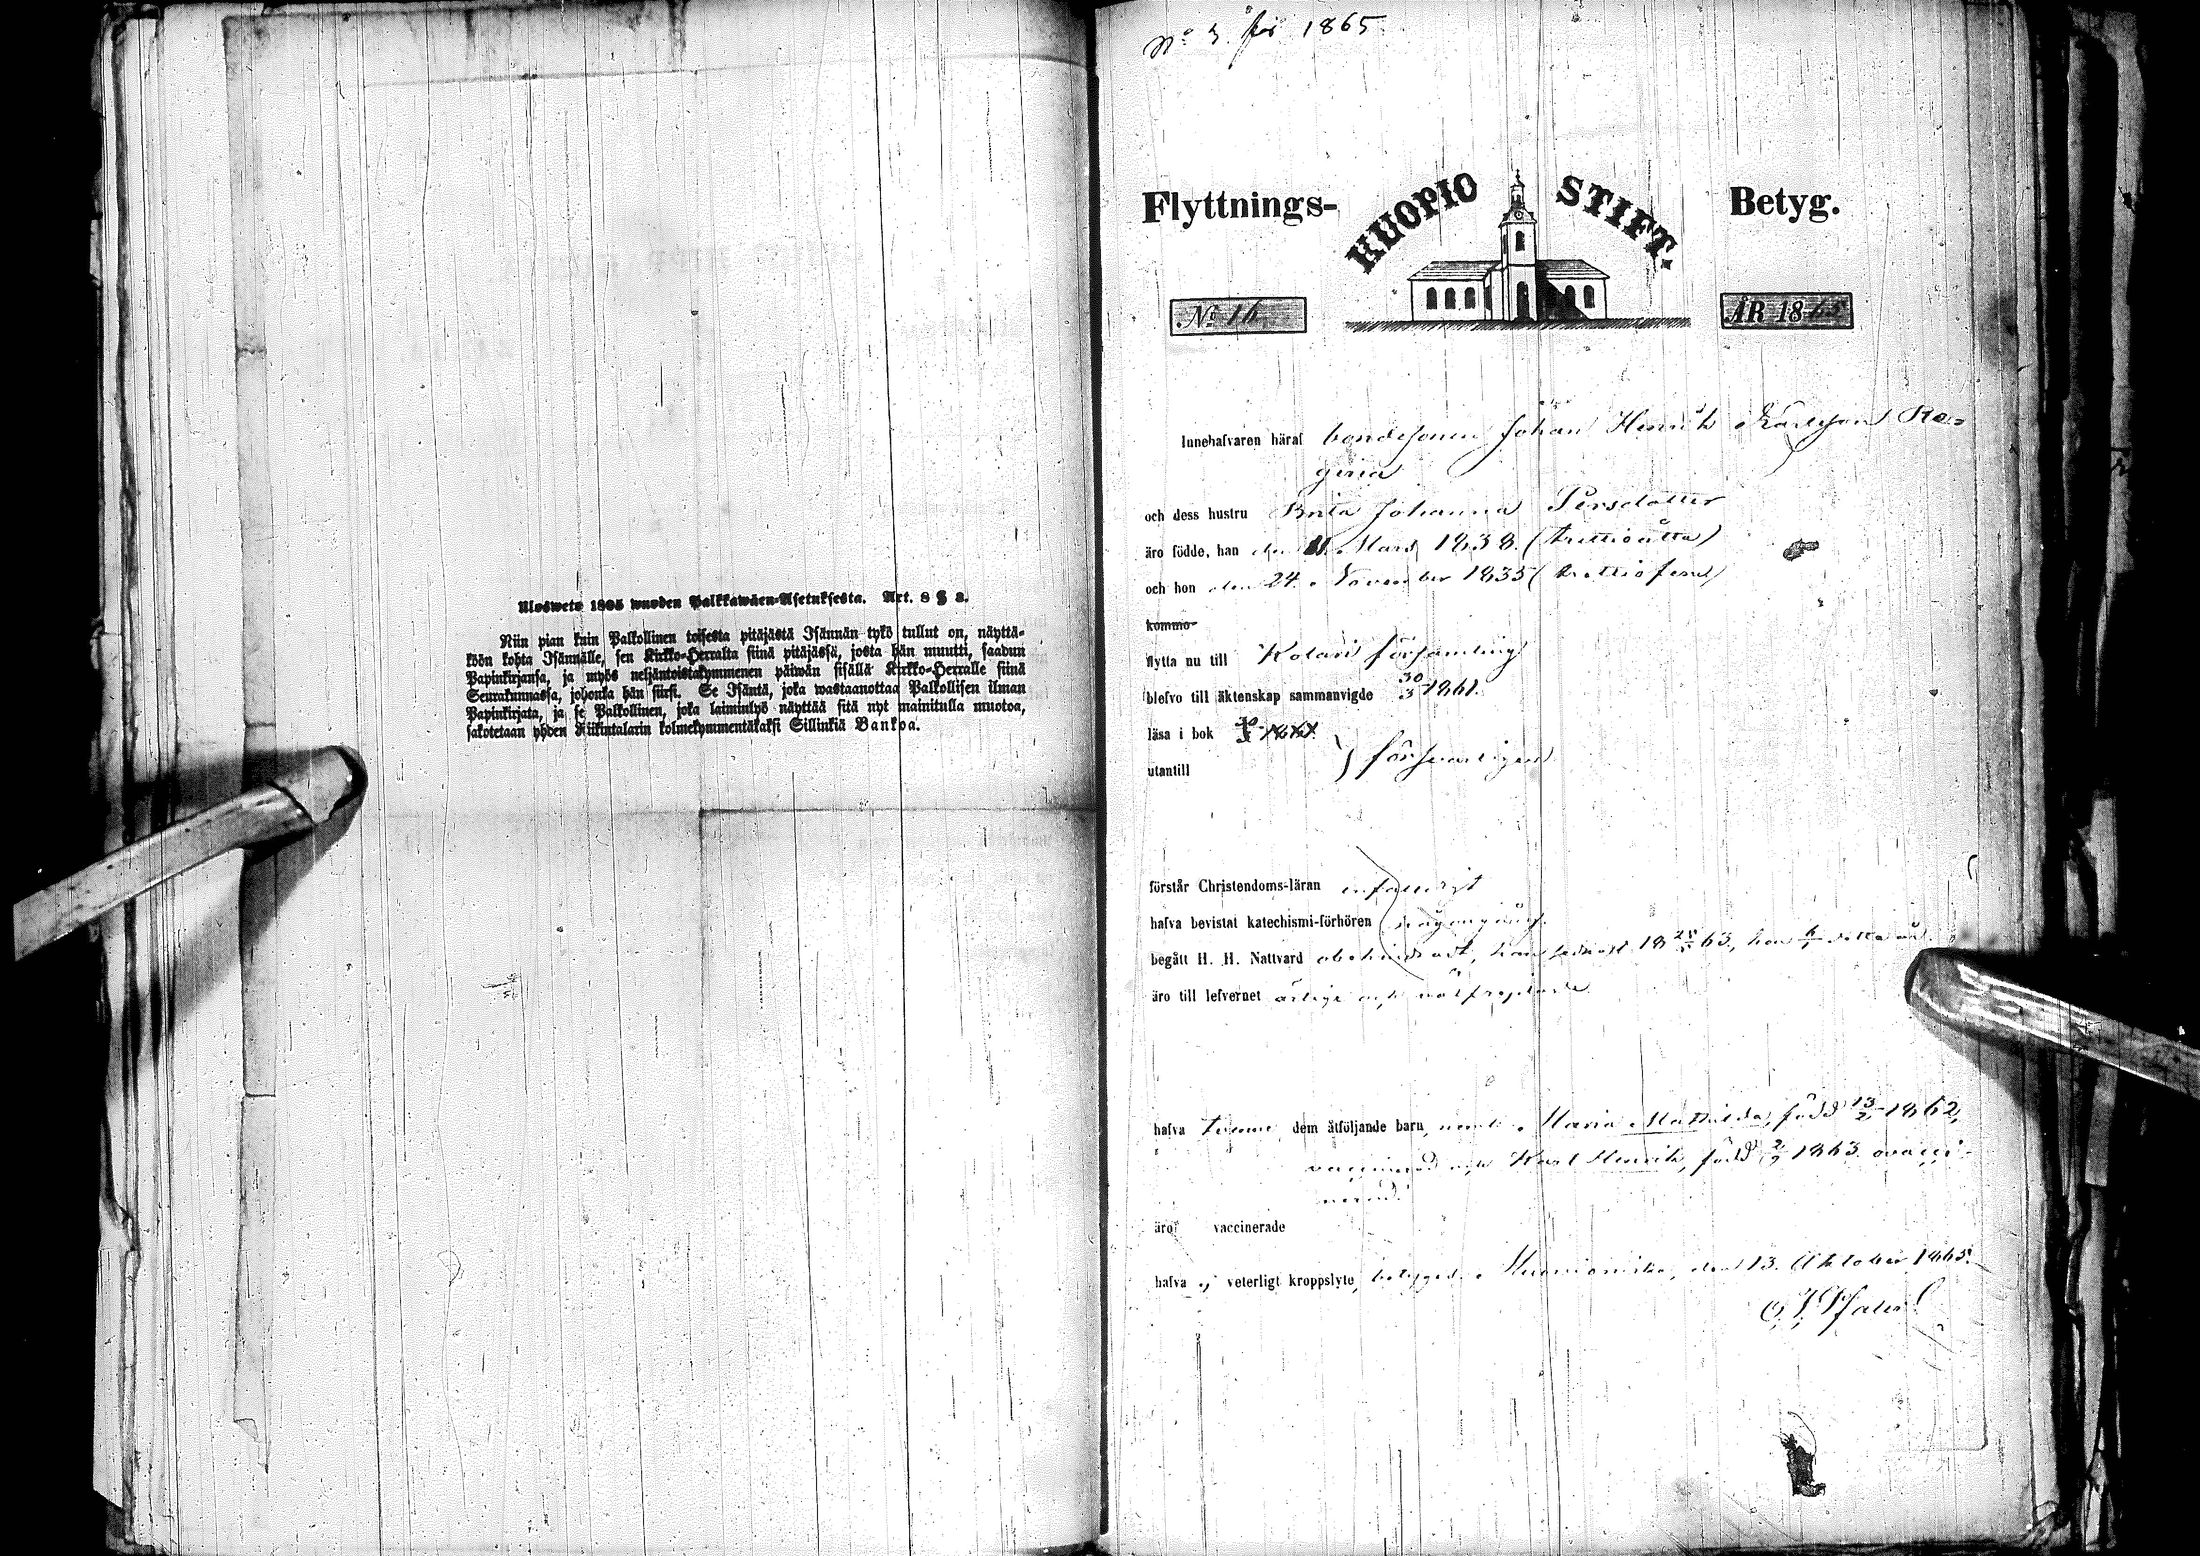 Ulosweto 1805 wuoden Palkkawäen-Asetuksesta. Art. 8 § 8.
Niin pian kuin Palkollinen toisesta pitäjästä Isännän tykö tullut on, näyttä-
köön kohta Isännälle, sen Kirkko-Herralta siinä pitäjässä, josta hän muutti, saadun
Papinkirjansa, ja myös neljäntoistakymmenen päiwän sisällä Kirkko-Herralle siinä
Seurakunnassa, johonka hän siirsi. Se Isäntä, joka wastaanottaa Palkollisen ilman
Papinkirjata, ja se Palkollinen, joka laiminlyö näyttää sitä nyt mainitulla muotoa,
sakotetaan yhden Riikintalarin kolmekymmentäkaksi Sillinkiä Bankoa.
No 3 för 1865
Flyttnings- KUOPIO STIFT. Betyg.
No 16 ÅR 1865
Innehafvaren häraf bondesonen Johan Henrik Karlsson Re-
gina
och dess hustru Brita Johanna Persdotter
äro födde, han den 11 Mars 1838 (trettioåtta)
och hon den 24 November 1835 (trettiofem)
kommo
flytta nu till Kolari församling
blefvo till äktenskap sammanvigde 30/3 1861.
läsa i bok 30/3 1861
utantill } försvarligen
förstår Christendoms-läran enfaldigt
hafva bevistat katechismi-förhören någongång.
begått H. H. Nattvard obehindradt, han sednast 18 25/5 63, hon 6/1 detta år
äro till lefvernet ärlige och välfrejdade
hafva tvenne dem åtföljande barn, neml. Maria Mathilda, född 13/2 1862,
vaccinerad och Karl Henrik, född 2/9 1863 ovacci-
nerad.
äro vaccinerade
hafva ej veterligt kroppslyte, betygad Muonioniska, den 13 Oktober 1865.